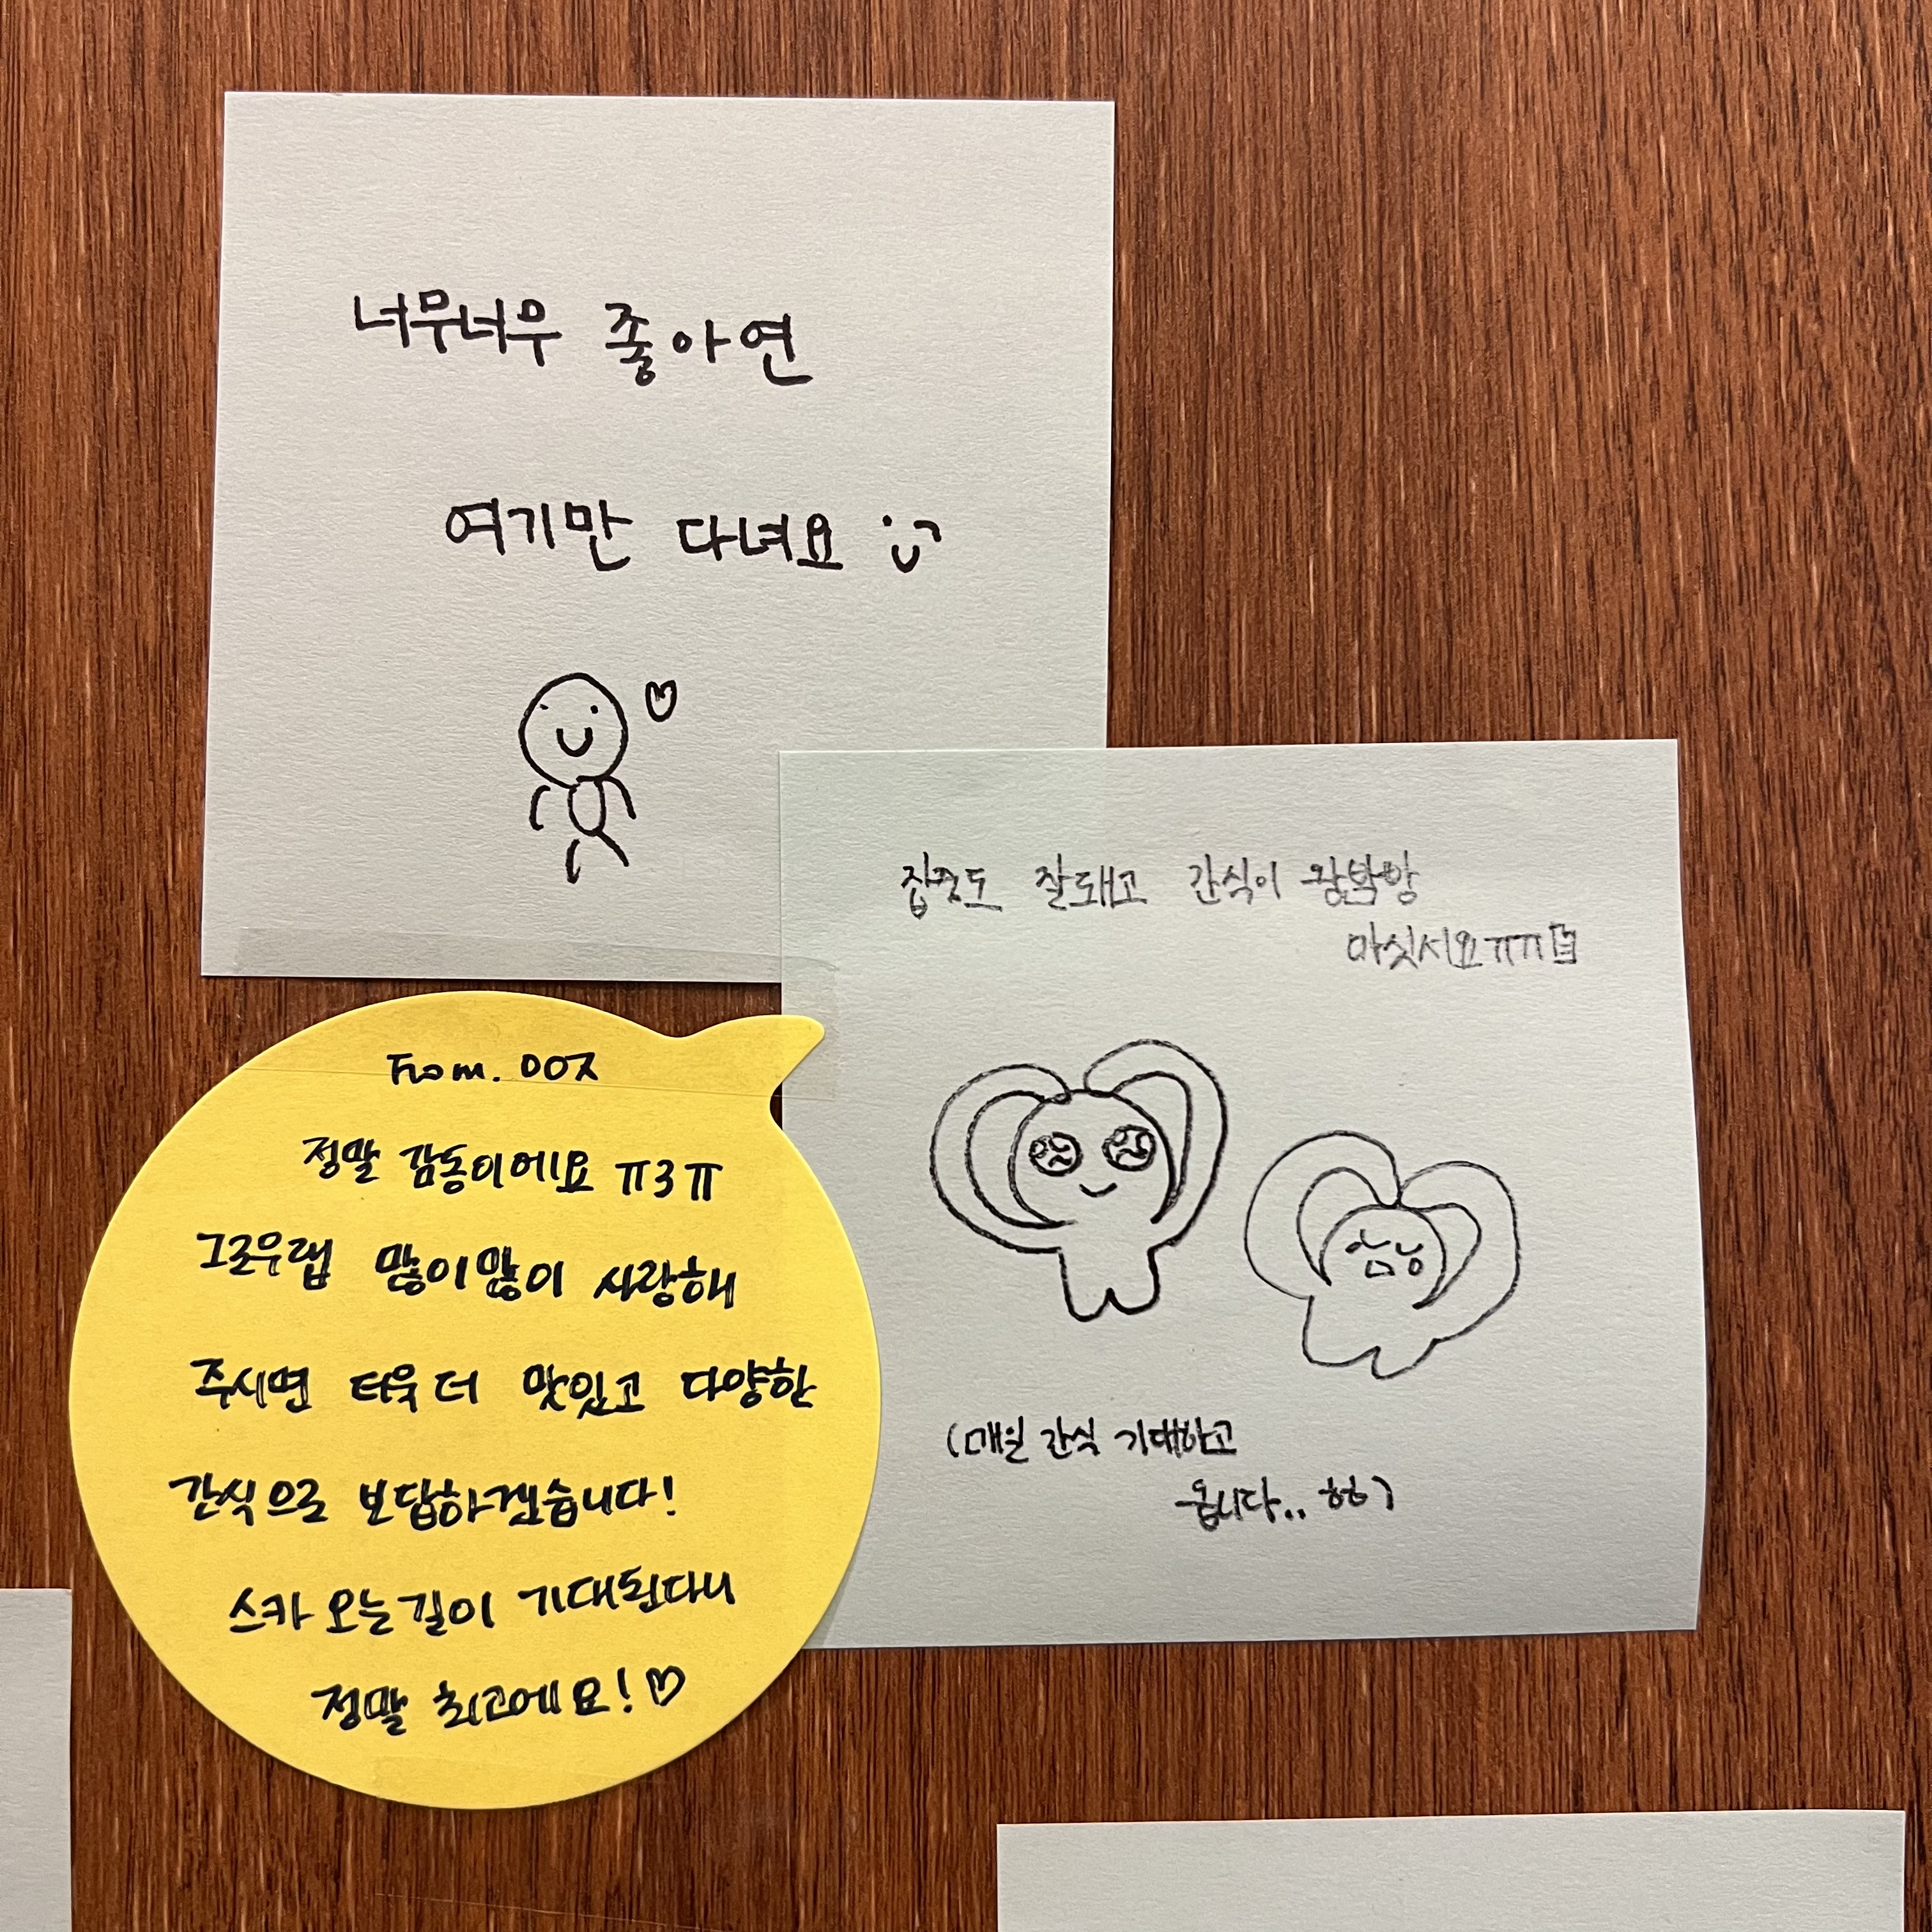 너무너무 좋아연
여기만 다녀요 :)
집중도 잘돼고 간식이 왕박방
마싯시요ㅠㅠ
(매일 간식 기대하고
옵니다.. ㅎㅎ)
From. 007
정말 감동이에요 ㅠ3ㅠ
그로우랩 많이많이 사랑해
주시면 더욱 더 맛있고 다양한
간식으로 보답하겠습니다!
스카 오는길이 기대된다니
정말 최고에요!♡